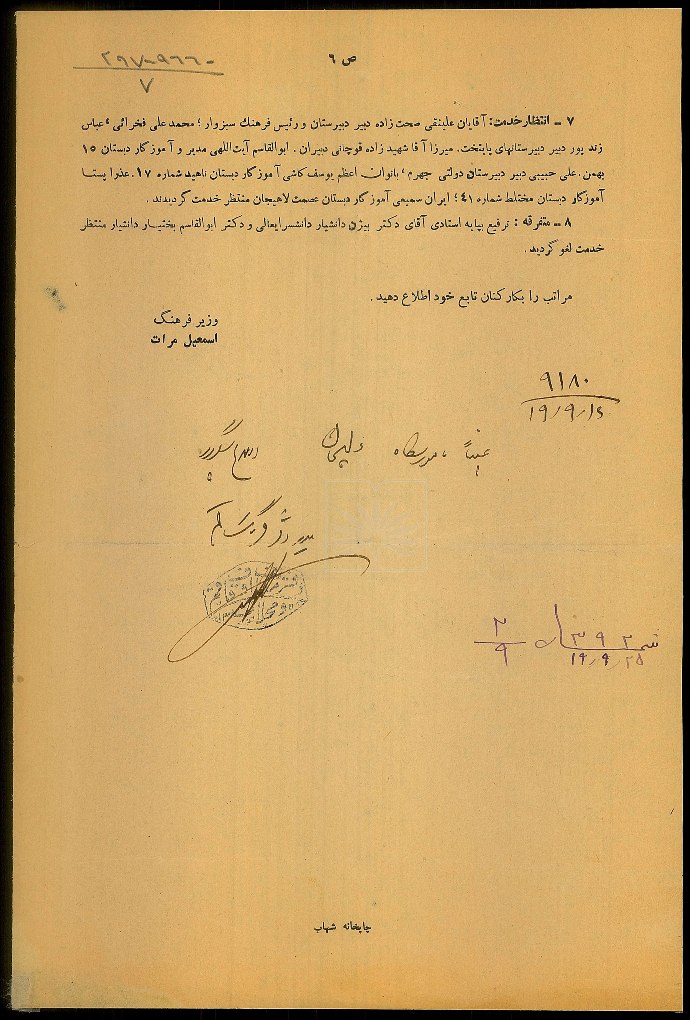 ص ٦
۲۹۷-۹٦٦-
۷
۷ ـ انتظار خدمت: آقایان علینقی صحت زاده دبیر دبیرستان و رئیس فرهنك سبزوار؛ محمد علی فخرائی؛ عباس
زند پور دبیر دبیرستانهای پایتخت. میرزا آقا شهید زاده قوچانی دبیران. ابوالقاسم آیت‌اللهی مدیر و آموزگار دبستان ۱۵
بهمن. علی حبیبی دبیر دبیرستان دولتی جهرم؛ بانوان اعظم یوسف کاشی آموزگار دبستان ناهید شماره ۱۷. عذرا پستا
آموزگار دبستان مختلط شماره ٤۱؛ ایران سمیعی آموزگار دبستان عصمت لاهیجان منتظر خدمت گردیدند.
۸ ـ متفرقه: ترفیع بپایه استادی آقای دکتر بیژن دانشیار دانشسرایعالی و دکتر ابوالقاسم بختیار دانشیار منتظر
خدمت لغو گردید.
مراتب را بکارکنان تابع خود اطلاع دهید.
وزیر فرهنگ
اسمعیل مرآت
۹۱۸۰
۱۹٫۹٫۱٤
شماره ۳۹۲
۱۹٫۹٫۲۵
۳
۹
چاپخانه شهاب